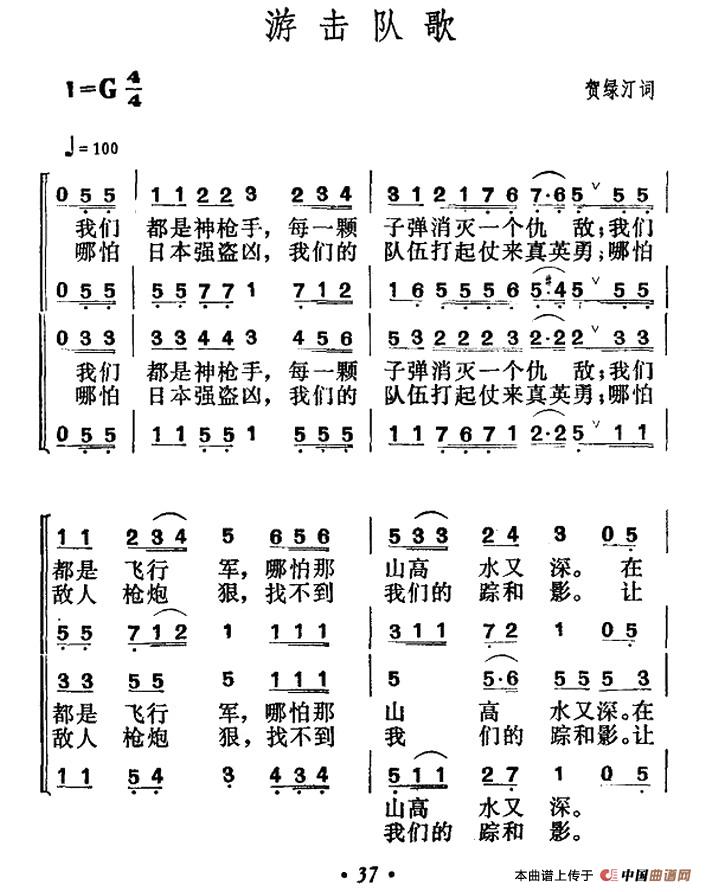 游击队歌
1=G 4/4
贺绿汀词
♩=100
0 5 5 | 1 1 2 2 3 2 3 4 | 3 1 2 1 7 6 7·6 5 ∨ 5 5
我们 都是神枪手，每一颗 子弹消灭一个仇 敌；我们
哪怕 日本强盗凶，我们的 队伍打起仗来真英勇；哪怕
0 5 5 | 5 5 7 7 1 7 1 2 | 1 6 5 5 5 6 5·#4 5 ∨ 5 5
0 3 3 | 3 3 4 4 3 4 5 6 | 5 3 2 2 2 3 2·2 2 ∨ 3 3
我们 都是神枪手，每一颗 子弹消灭一个仇 敌；我们
哪怕 日本强盗凶，我们的 队伍打起仗来真英勇；哪怕
0 5 5 | 1 1 5 5 1 5 5 5 | 1 1 7 6 7 1 2·2 5 ∨ 1 1
1 1 2 3 4 5 6 5 6 | 5 3 3 2 4 3 0 5
都是 飞行 军，哪怕那 山高 水又深。在
敌人 枪炮 狠，找不到 我们的 踪和影。让
5 5 7 1 2 1 1 1 1 | 3 1 1 7 2 1 0 5
3 3 5 5 5 1 1 1 | 5 5·6 5 5 5 3
都是 飞行 军，哪怕那 山 高 水又深。在
敌人 枪炮 狠，找不到 我 们的 踪和影。让
1 1 5 4 3 4 3 4 | 5 1 1 2 7 1 0 5
山高 水又深。
我们的 踪和影。
· 37 ·
本曲谱上传于 中国曲谱网